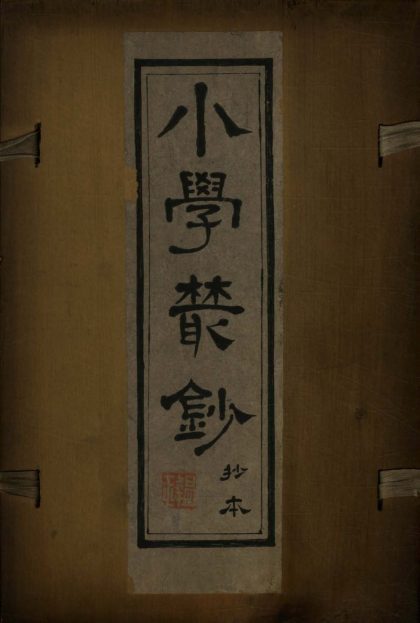 小學叢鈔
抄本